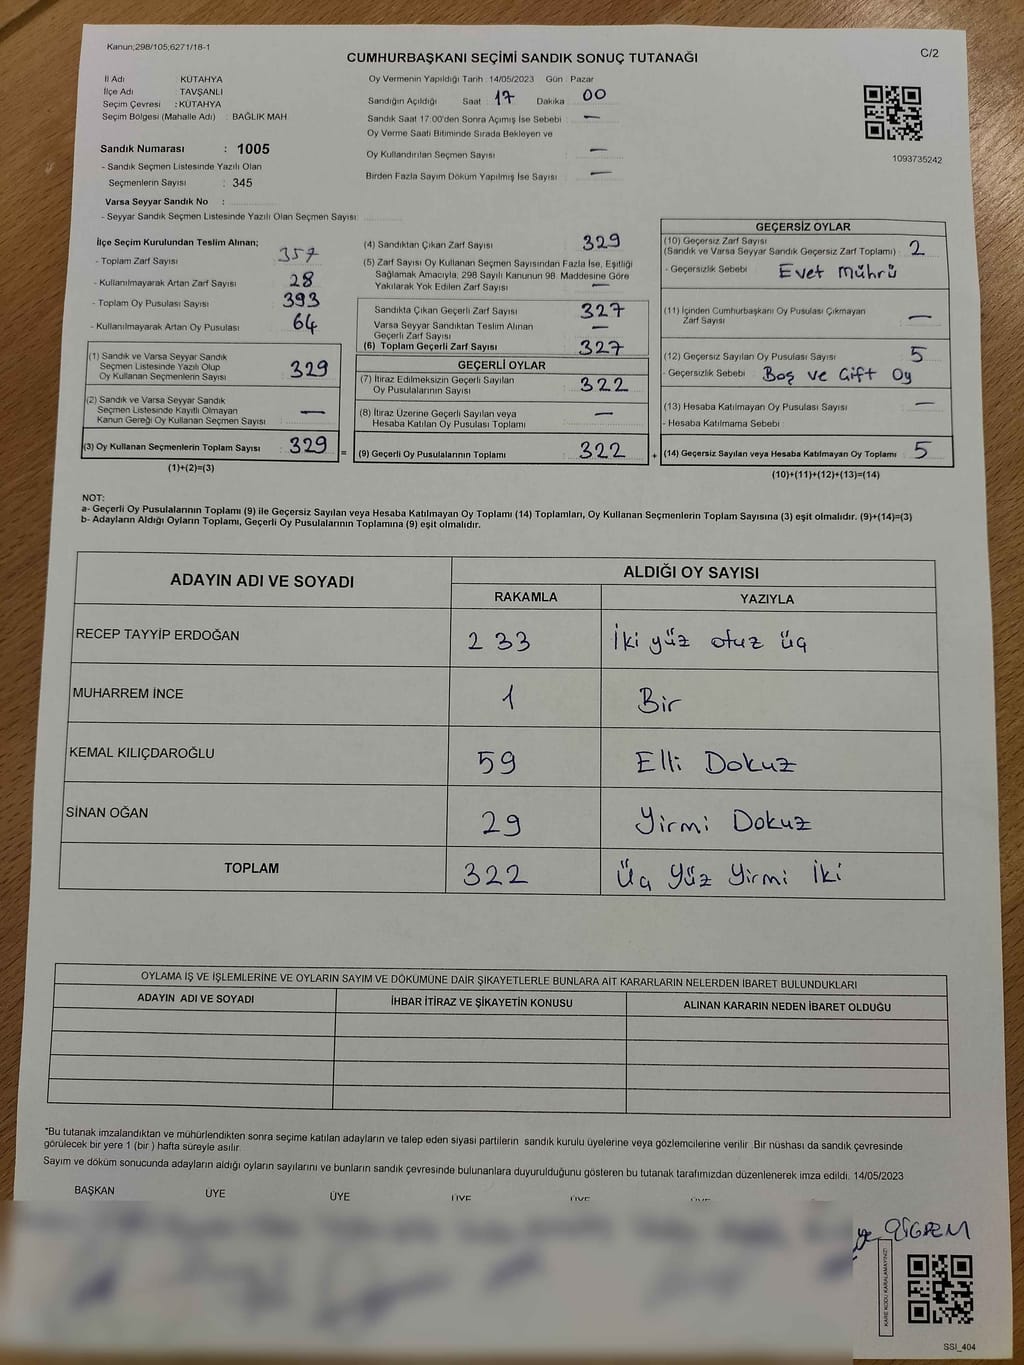 Kanun;298/105;6271/18-1
C/2
CUMHURBAŞKANI SEÇİMİ SANDIK SONUÇ TUTANAĞI
İl Adı : KÜTAHYA
İlçe Adı : TAVŞANLI
Seçim Çevresi : KÜTAHYA
Seçim Bölgesi (Mahalle Adı) : BAĞLIK MAH
Sandık Numarası : 1005
- Sandık Seçmen Listesinde Yazılı Olan
Seçmenlerin Sayısı : 345
Varsa Seyyar Sandık No :
- Seyyar Sandık Seçmen Listesinde Yazılı Olan Seçmen Sayısı:
Oy Vermenin Yapıldığı Tarih :14/05/2023 Gün : Pazar
Sandığın Açıldığı Saat : 17 Dakika : 00
Sandık Saat 17:00'den Sonra Açımış İse Sebebi : —
Oy Verme Saati Bitiminde Sırada Bekleyen ve
Oy Kullandırılan Seçmen Sayısı : —
Birden Fazla Sayım Döküm Yapılmış İse Sayısı : —
1093735242
İlçe Seçim Kurulundan Teslim Alınan;
- Toplam Zarf Sayısı : 357
- Kullanılmayarak Artan Zarf Sayısı : 28
- Toplam Oy Pusulası Sayısı : 393
- Kullanılmayarak Artan Oy Pusulası : 64
(1) Sandık ve Varsa Seyyar Sandık
Seçmen Listesinde Yazılı Olup
Oy Kullanan Seçmenlerin Sayısı : 329
(2) Sandık ve Varsa Seyyar Sandık
Seçmen Listesinde Kayıtlı Olmayan
Kanun Gereği Oy Kullanan Seçmen Sayısı : —
(3) Oy Kullanan Seçmenlerin Toplam Sayısı : 329
(1)+(2)=(3)
=
(4) Sandıktan Çıkan Zarf Sayısı : 329
(5) Zarf Sayısı Oy Kullanan Seçmen Sayısından Fazla İse, Eşitliği
Sağlamak Amacıyla, 298 Sayılı Kanunun 98. Maddesine Göre
Yakılarak Yok Edilen Zarf Sayısı : —
Sandıkta Çıkan Geçerli Zarf Sayısı : 327
Varsa Seyyar Sandıktan Teslim Alınan
Geçerli Zarf Sayısı : —
(6) Toplam Geçerli Zarf Sayısı : 327
GEÇERLİ OYLAR
(7) İtiraz Edilmeksizin Geçerli Sayılan
Oy Pusulalarının Sayısı : 322
(8) İtiraz Üzerine Geçerli Sayılan veya
Hesaba Katılan Oy Pusulası Toplamı : —
(9) Geçerli Oy Pusulalarının Toplamı : 322
+
GEÇERSİZ OYLAR
(10) Geçersiz Zarf Sayısı
(Sandık ve Varsa Seyyar Sandık Geçersiz Zarf Toplamı) : 2
- Geçersizlik Sebebi : Evet Mührü
(11) İçinden Cumhurbaşkanı Oy Pusulası Çıkmayan
Zarf Sayısı : —
(12) Geçersiz Sayılan Oy Pusulası Sayısı : 5
- Geçersizlik Sebebi : Boş ve Çift Oy
(13) Hesaba Katılmayan Oy Pusulası Sayısı : —
- Hesaba Katılmama Sebebi :
(14) Geçersiz Sayılan veya Hesaba Katılmayan Oy Toplamı : 5
(10)+(11)+(12)+(13)=(14)
NOT:
a- Geçerli Oy Pusulalarının Toplamı (9) ile Geçersiz Sayılan veya Hesaba Katılmayan Oy Toplamı (14) Toplamları, Oy Kullanan Seçmenlerin Toplam Sayısına (3) eşit olmalıdır. (9)+(14)=(3)
b- Adayların Aldığı Oyların Toplamı, Geçerli Oy Pusulalarının Toplamına (9) eşit olmalıdır.
ADAYIN ADI VE SOYADI
ALDIĞI OY SAYISI
RAKAMLA YAZIYLA
RECEP TAYYİP ERDOĞAN 233 İki yüz otuz üç
MUHARREM İNCE 1 Bir
KEMAL KILIÇDAROĞLU 59 Elli Dokuz
SİNAN OĞAN 29 Yirmi Dokuz
TOPLAM 322 Üç Yüz Yirmi İki
OYLAMA İŞ VE İŞLEMLERİNE VE OYLARIN SAYIM VE DÖKÜMÜNE DAİR ŞİKAYETLERLE BUNLARA AİT KARARLARIN NELERDEN İBARET BULUNDUKLARI
ADAYIN ADI VE SOYADI İHBAR İTİRAZ VE ŞİKAYETİN KONUSU ALINAN KARARIN NEDEN İBARET OLDUĞU
*Bu tutanak imzalandıktan ve mühürlendikten sonra seçime katılan adayların ve talep eden siyasi partilerin sandık kurulu üyelerine veya gözlemcilerine verilir .Bir nüshası da sandık çevresinde
görülecek bir yere 1 (bir ) hafta süreyle asılır.
Sayım ve döküm sonucunda adayların aldığı oyların sayılarını ve bunların sandık çevresinde bulunanlara duyurulduğunu gösteren bu tutanak tarafımızdan düzenlenerek imza edildi. 14/05/2023
BAŞKAN ÜYE ÜYE ÜYE ÜYE ÜYE
ÇİĞDEM
KARE KODU KARALAMAYINIZ!
SSI_404